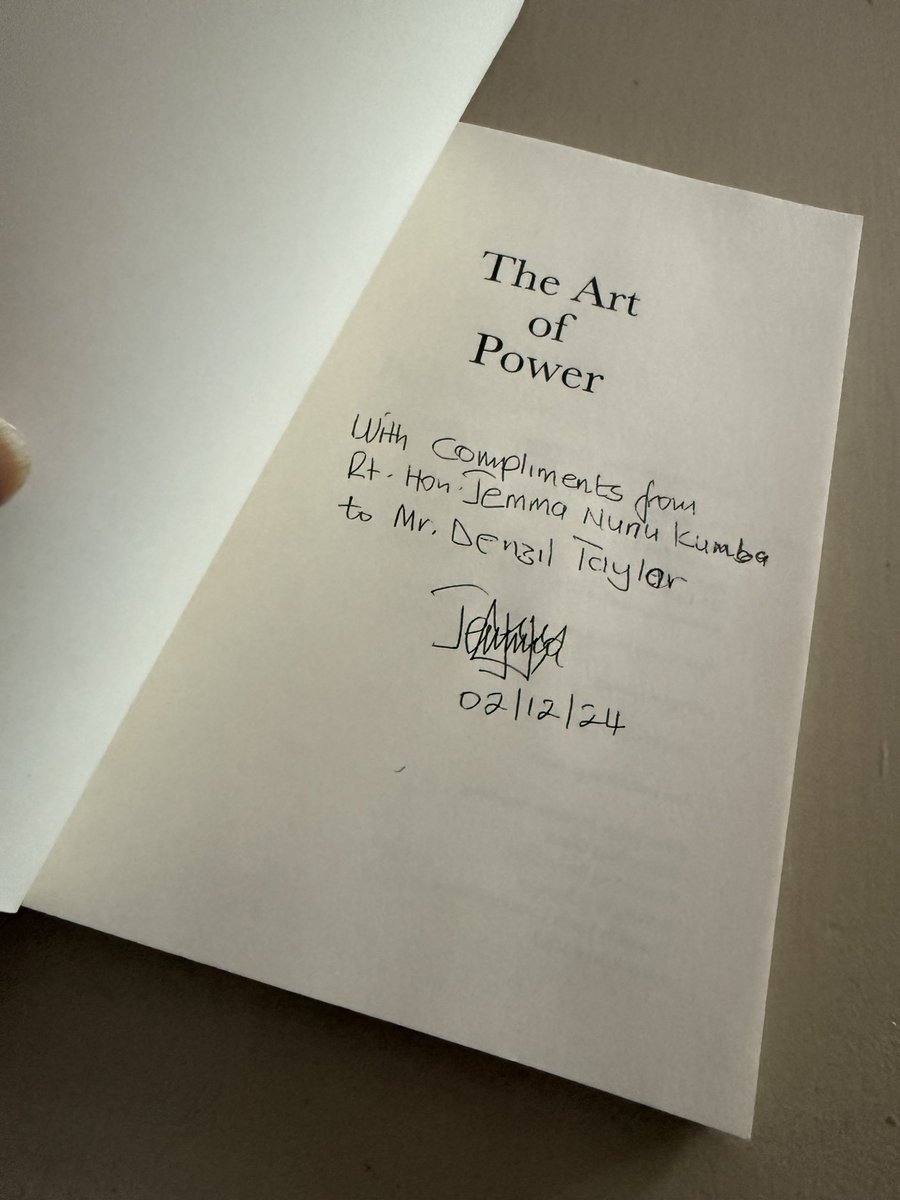 The Art
of
Power
With Compliments from
Rt. Hon. Jemma Nunu Kumba
to Mr. Denzil Taylor
02/12/24